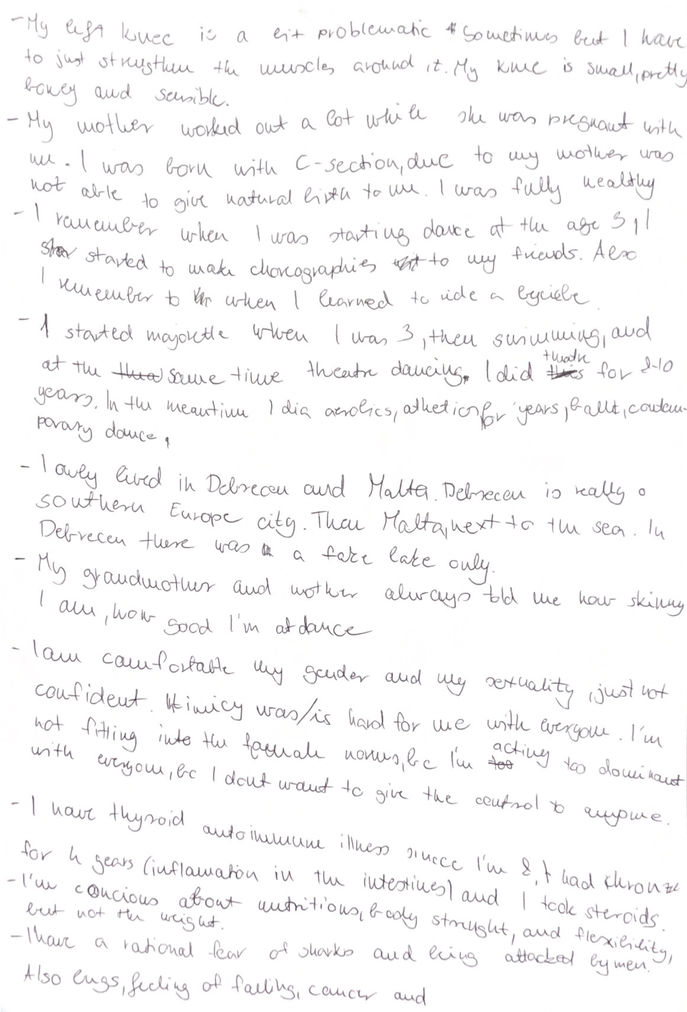 - My left knee is a bit problematic sometimes but I have
to just strengthen the muscles around it. My knee is small, pretty
boney and sensible.
- My mother worked out a lot while she was pregnant with
me. I was born with C-section, due to my mother was
not able to give natural birth to me. I was fully healthy
- I remember when I was starting dance at the age 3, I
started to make choreographies to my friends. Also
I remember to when I learned to ride a bycicle.
- I started majorette when I was 3, then swimming, and
at the same time theatre dancing. I did theatre for 8-10
years. In the meantime I did aerobics, athletics for years, ballet, contem-
porary dance,
- I only lived in Debrecen and Malta. Debrecen is really a
southern Europe city. Then Malta, next to the sea. In
Debrecen there was a fake lake only.
- My grandmother and mother always told me how skinny
I am, how good I'm at dance
- I am comfortable my gender and my sexuality, just not
confident. Intimicy was/is hard for me with everyone. I'm
not fitting into the female norms, bc I'm acting too dominant
with everyone, bc I dont want to give the control to anyone.
- I have thyroid autoimmune illness since I'm 8, I had chron
for 4 years (inflamation in the intestines) and I took steroids.
- I'm concious about nutritions, body strenght, and flexibility,
but not the weight.
- I have a rational fear of sharks and being attacked by men.
Also bugs, feeling of falling, cancer and